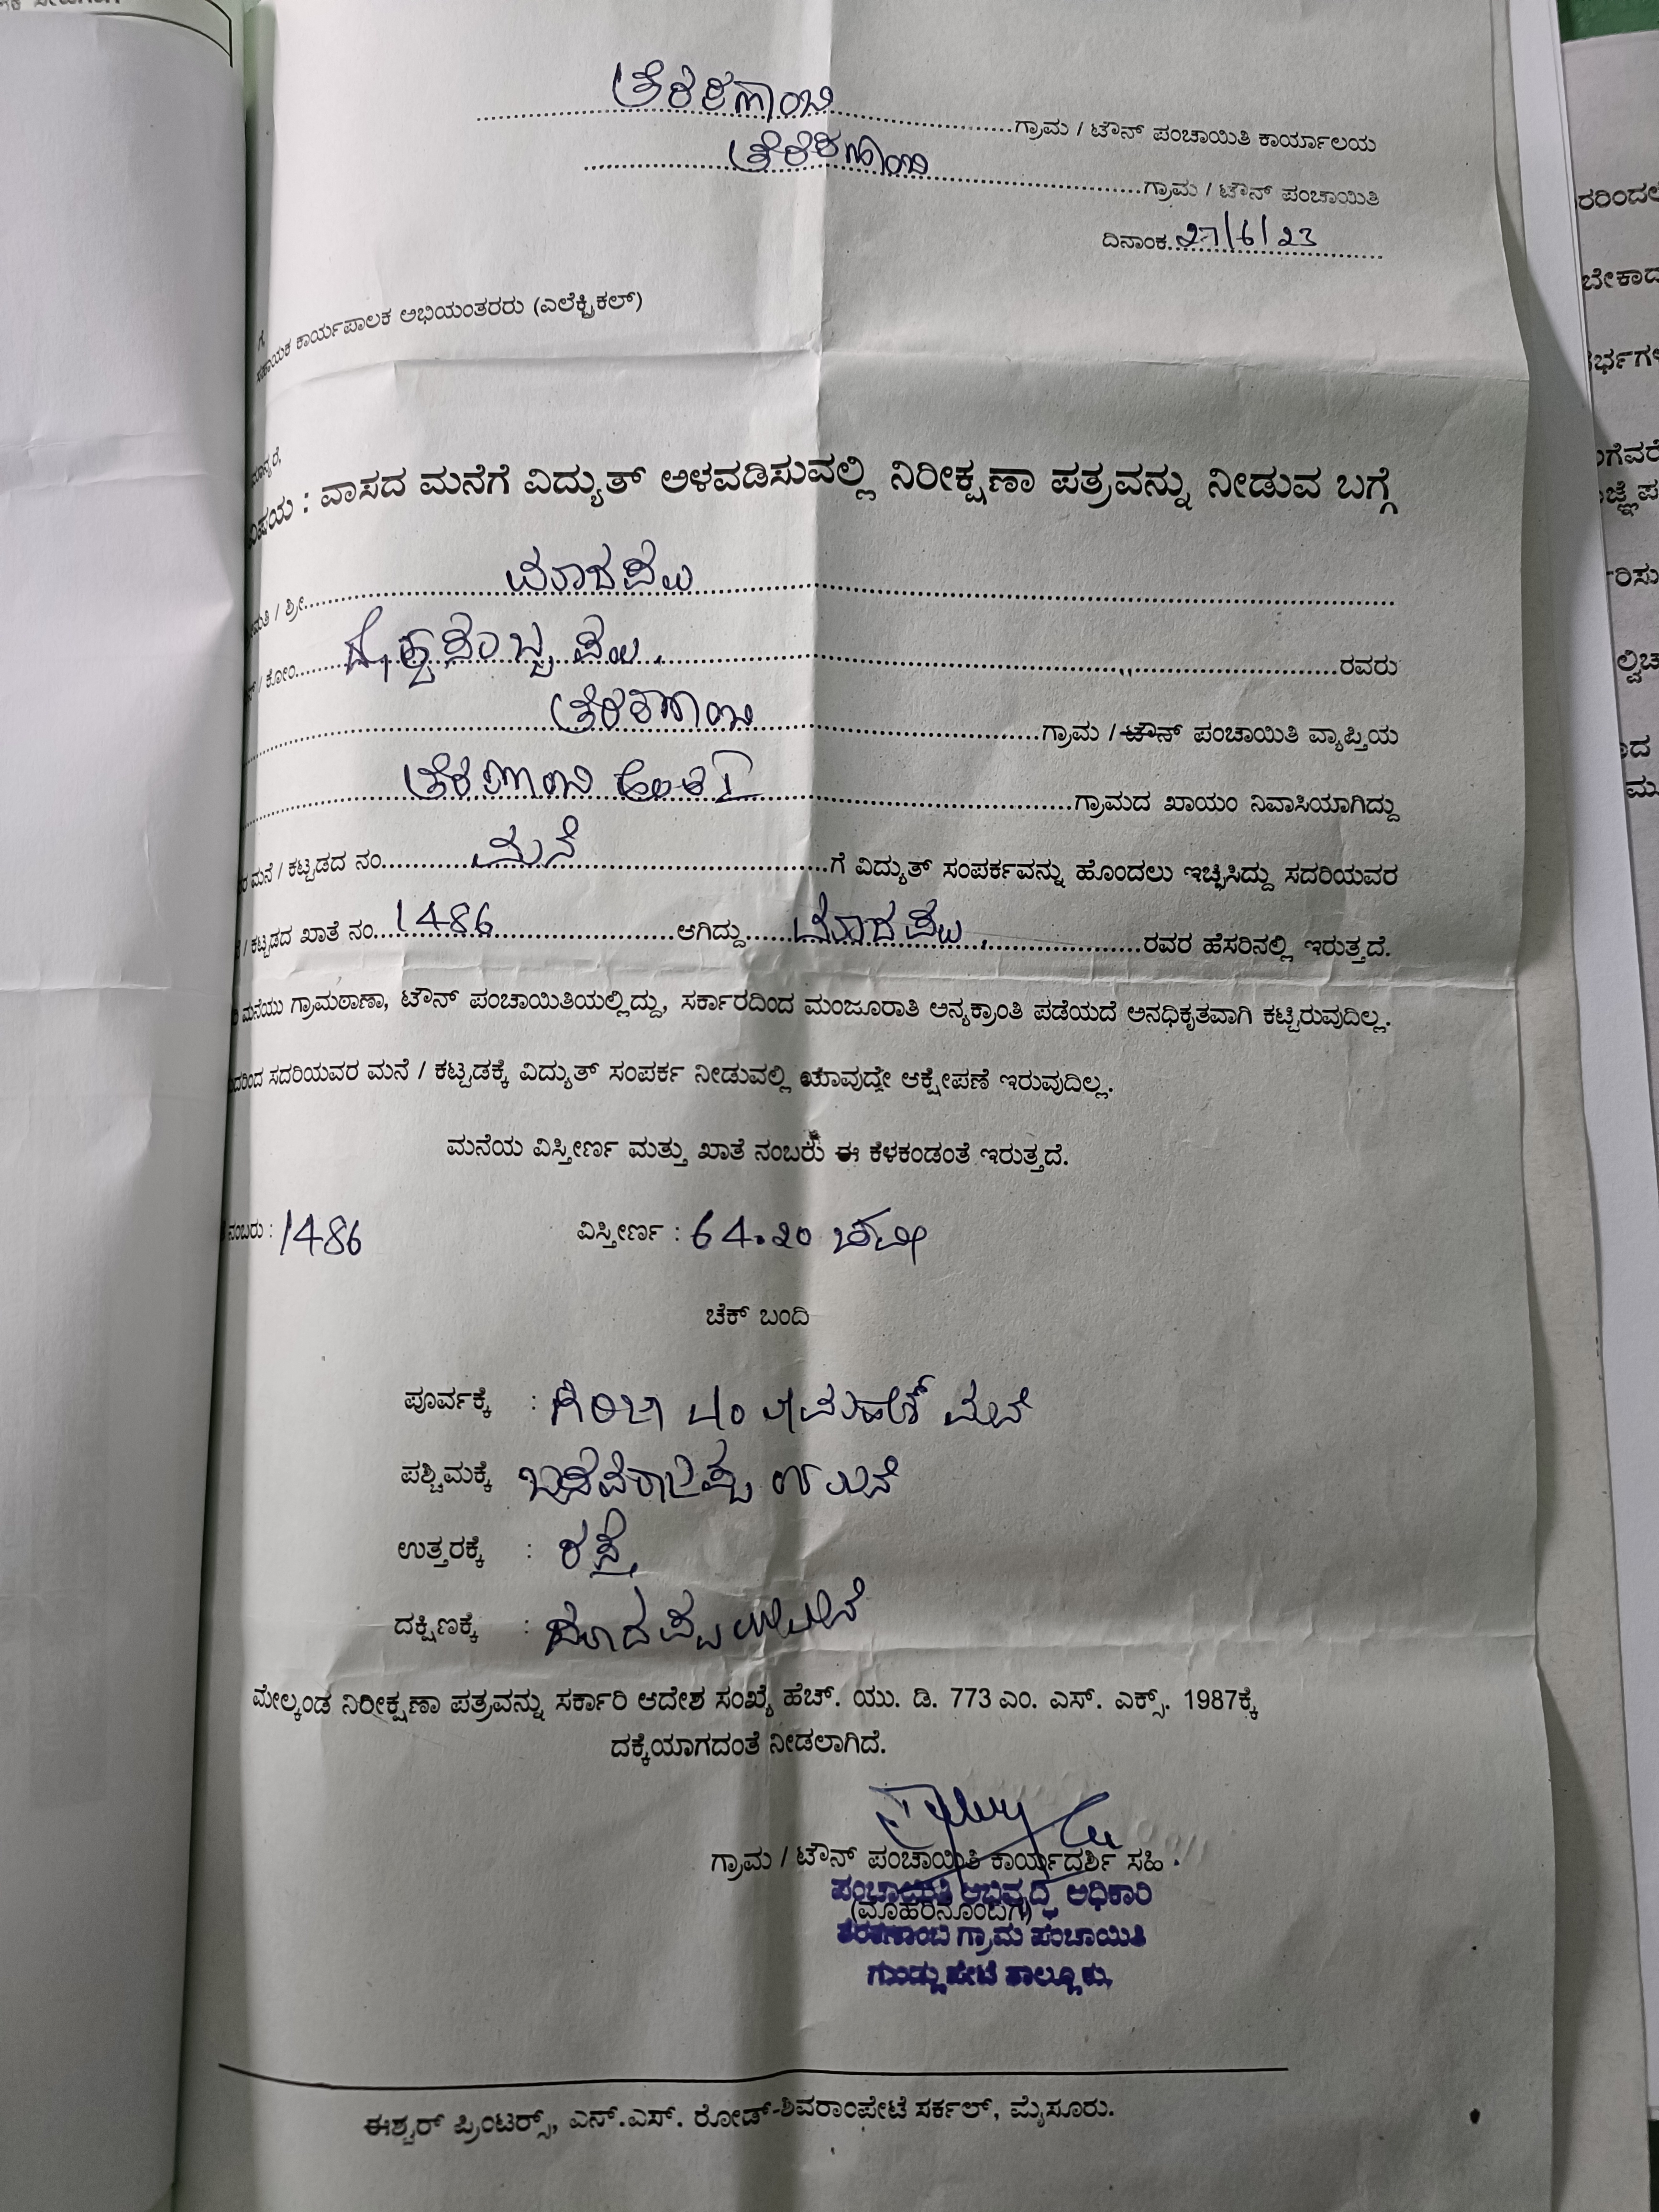 ತೆರಕಣಾಂಬಿ ಗ್ರಾಮ / ಟೌನ್ ಪಂಚಾಯಿತಿ ಕಾರ್ಯಾಲಯ
ತೆರಕಣಾಂಬಿ ಗ್ರಾಮ / ಟೌನ್ ಪಂಚಾಯಿತಿ
ದಿನಾಂಕ 27/6/23
ಗೆ,
ಸಹಾಯಕ ಕಾರ್ಯಪಾಲಕ ಅಭಿಯಂತರರು (ಎಲೆಕ್ಟ್ರಿಕಲ್)
ಮಾನ್ಯರೆ,
ವಿಷಯ : ವಾಸದ ಮನೆಗೆ ವಿದ್ಯುತ್ ಅಳವಡಿಸುವಲ್ಲಿ ನಿರೀಕ್ಷಣಾ ಪತ್ರವನ್ನು ನೀಡುವ ಬಗ್ಗೆ
ಮತಿ / ಶ್ರೀ ಮಾದಪ್ಪ
/ ಕೋಂ ರವರು
ತೆರಕಣಾಂಬಿ ಗ್ರಾಮ / ಟೌನ್ ಪಂಚಾಯಿತಿ ವ್ಯಾಪ್ತಿಯ
ತೆರಕಣಾಂಬಿ ಗ್ರಾಮದ ಖಾಯಂ ನಿವಾಸಿಯಾಗಿದ್ದು
ಮನೆ / ಕಟ್ಟಡದ ನಂ ಮನೆ ಗೆ ವಿದ್ಯುತ್ ಸಂಪರ್ಕವನ್ನು ಹೊಂದಲು ಇಚ್ಛಿಸಿದ್ದು ಸದರಿಯವರ
/ ಕಟ್ಟಡದ ಖಾತೆ ನಂ 1486 ಆಗಿದ್ದು ಮಾದಪ್ಪ ರವರ ಹೆಸರಿನಲ್ಲಿ ಇರುತ್ತದೆ.
ಮನೆಯು ಗ್ರಾಮಠಾಣಾ, ಟೌನ್ ಪಂಚಾಯಿತಿಯಲ್ಲಿದ್ದು, ಸರ್ಕಾರದಿಂದ ಮಂಜೂರಾತಿ ಅನ್ಯಕ್ರಾಂತಿ ಪಡೆಯದೆ ಅನಧಿಕೃತವಾಗಿ ಕಟ್ಟಿರುವುದಿಲ್ಲ.
ಸದರಿಯವರ ಮನೆ / ಕಟ್ಟಡಕ್ಕೆ ವಿದ್ಯುತ್ ಸಂಪರ್ಕ ನೀಡುವಲ್ಲಿ ಯಾವುದೇ ಆಕ್ಷೇಪಣೆ ಇರುವುದಿಲ್ಲ.
ಮನೆಯ ವಿಸ್ತೀರ್ಣ ಮತ್ತು ಖಾತೆ ನಂಬರು ಈ ಕೆಳಕಂಡಂತೆ ಇರುತ್ತದೆ.
ನಂಬರು : 1486 ವಿಸ್ತೀರ್ಣ : 64.20 ಚಮೀ
ಚೆಕ್ ಬಂದಿ
ಪೂರ್ವಕ್ಕೆ : ಮನೆ
ಪಶ್ಚಿಮಕ್ಕೆ ಮನೆ
ಉತ್ತರಕ್ಕೆ : ರಸ್ತೆ
ದಕ್ಷಿಣಕ್ಕೆ :
ಮೇಲ್ಕಂಡ ನಿರೀಕ್ಷಣಾ ಪತ್ರವನ್ನು ಸರ್ಕಾರಿ ಆದೇಶ ಸಂಖ್ಯೆ ಹೆಚ್. ಯು. ಡಿ. 773 ಎಂ. ಎಸ್. ಎಕ್ಸ್. 1987ಕ್ಕೆ
ದಕ್ಕೆಯಾಗದಂತೆ ನೀಡಲಾಗಿದೆ.
ಗ್ರಾಮ / ಟೌನ್ ಪಂಚಾಯಿತಿ ಕಾರ್ಯದರ್ಶಿ ಸಹಿ
ಪಂಚಾಯಿತಿ ಅಭಿವೃದ್ಧಿ ಅಧಿಕಾರಿ
(ಮೊಹರಿನೊಂದಿಗೆ)
ತೆರಕಣಾಂಬಿ ಗ್ರಾಮ ಪಂಚಾಯಿತಿ
ಗುಂಡ್ಲುಪೇಟೆ ತಾಲ್ಲೂಕು.
ಈಶ್ವರ್ ಪ್ರಿಂಟರ್ಸ್, ಎನ್.ಎಸ್. ರೋಡ್-ಶಿವರಾಂಪೇಟೆ ಸರ್ಕಲ್, ಮೈಸೂರು.